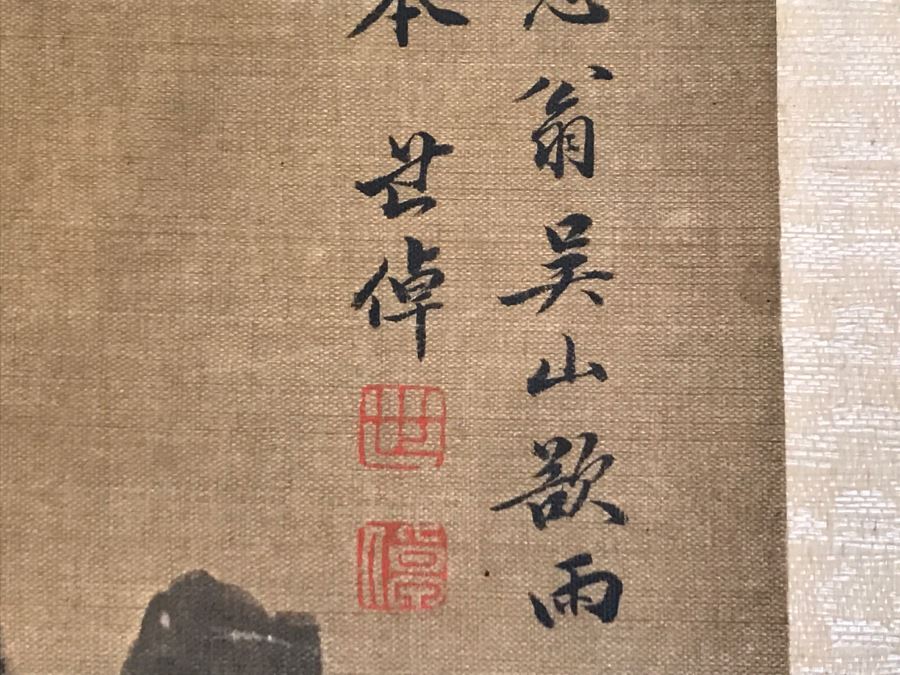 翁吳山欲雨
本 世倬
世
倬